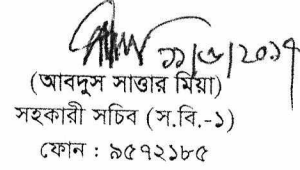 (আবদুস সাত্তার মিয়া)
সহকারী সচিব (স.বি.-১)
ফোন : ৯৫৭২১৮৫